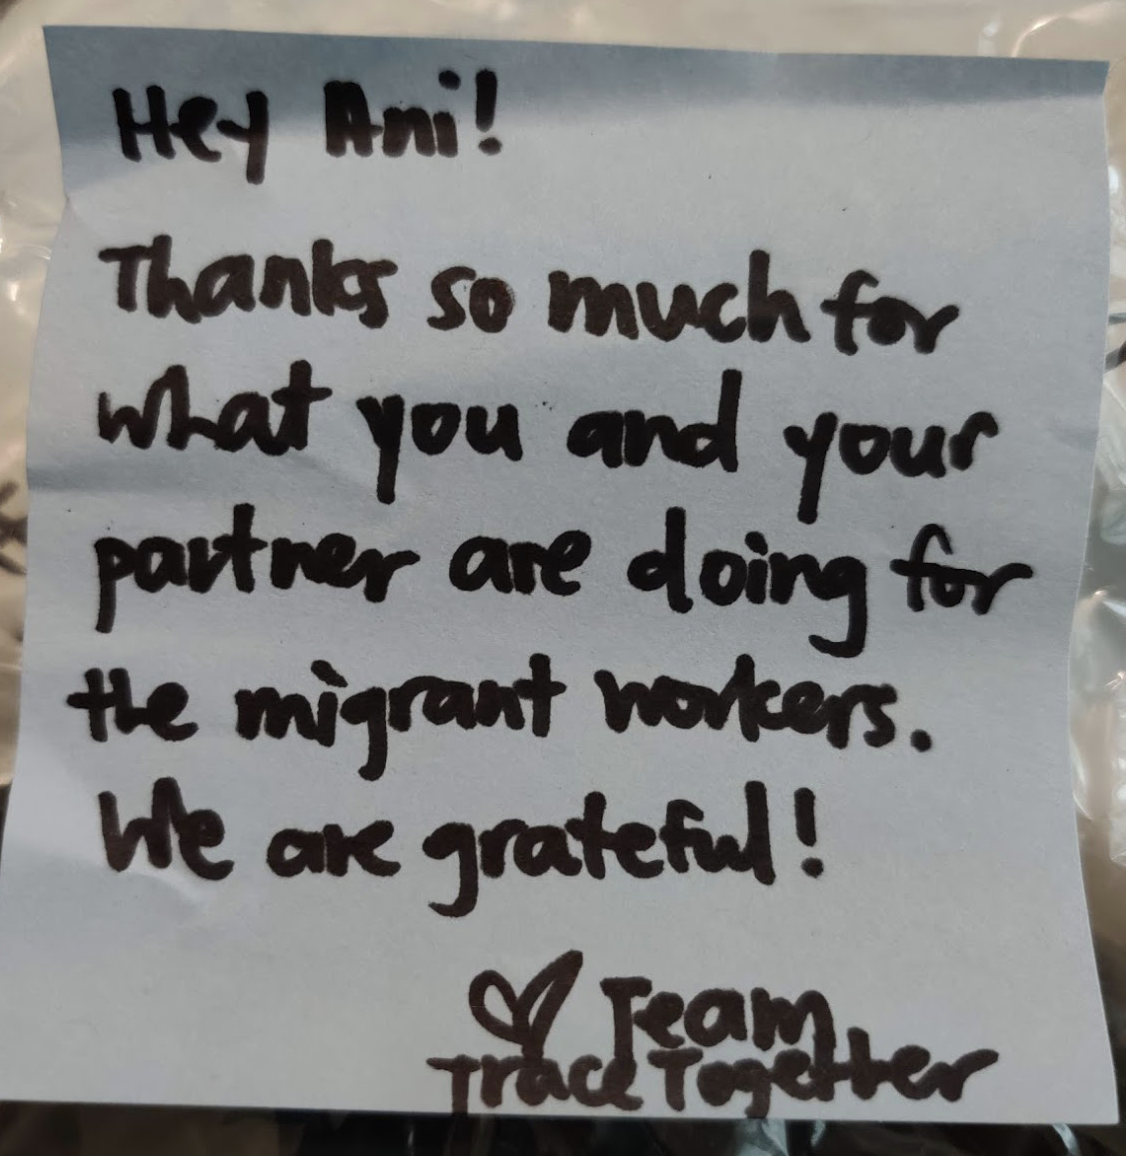 Hey Ani!
Thanks so much for
what you and your
partner are doing for
the migrant workers.
We are grateful!
♡ Team
TraceTogether